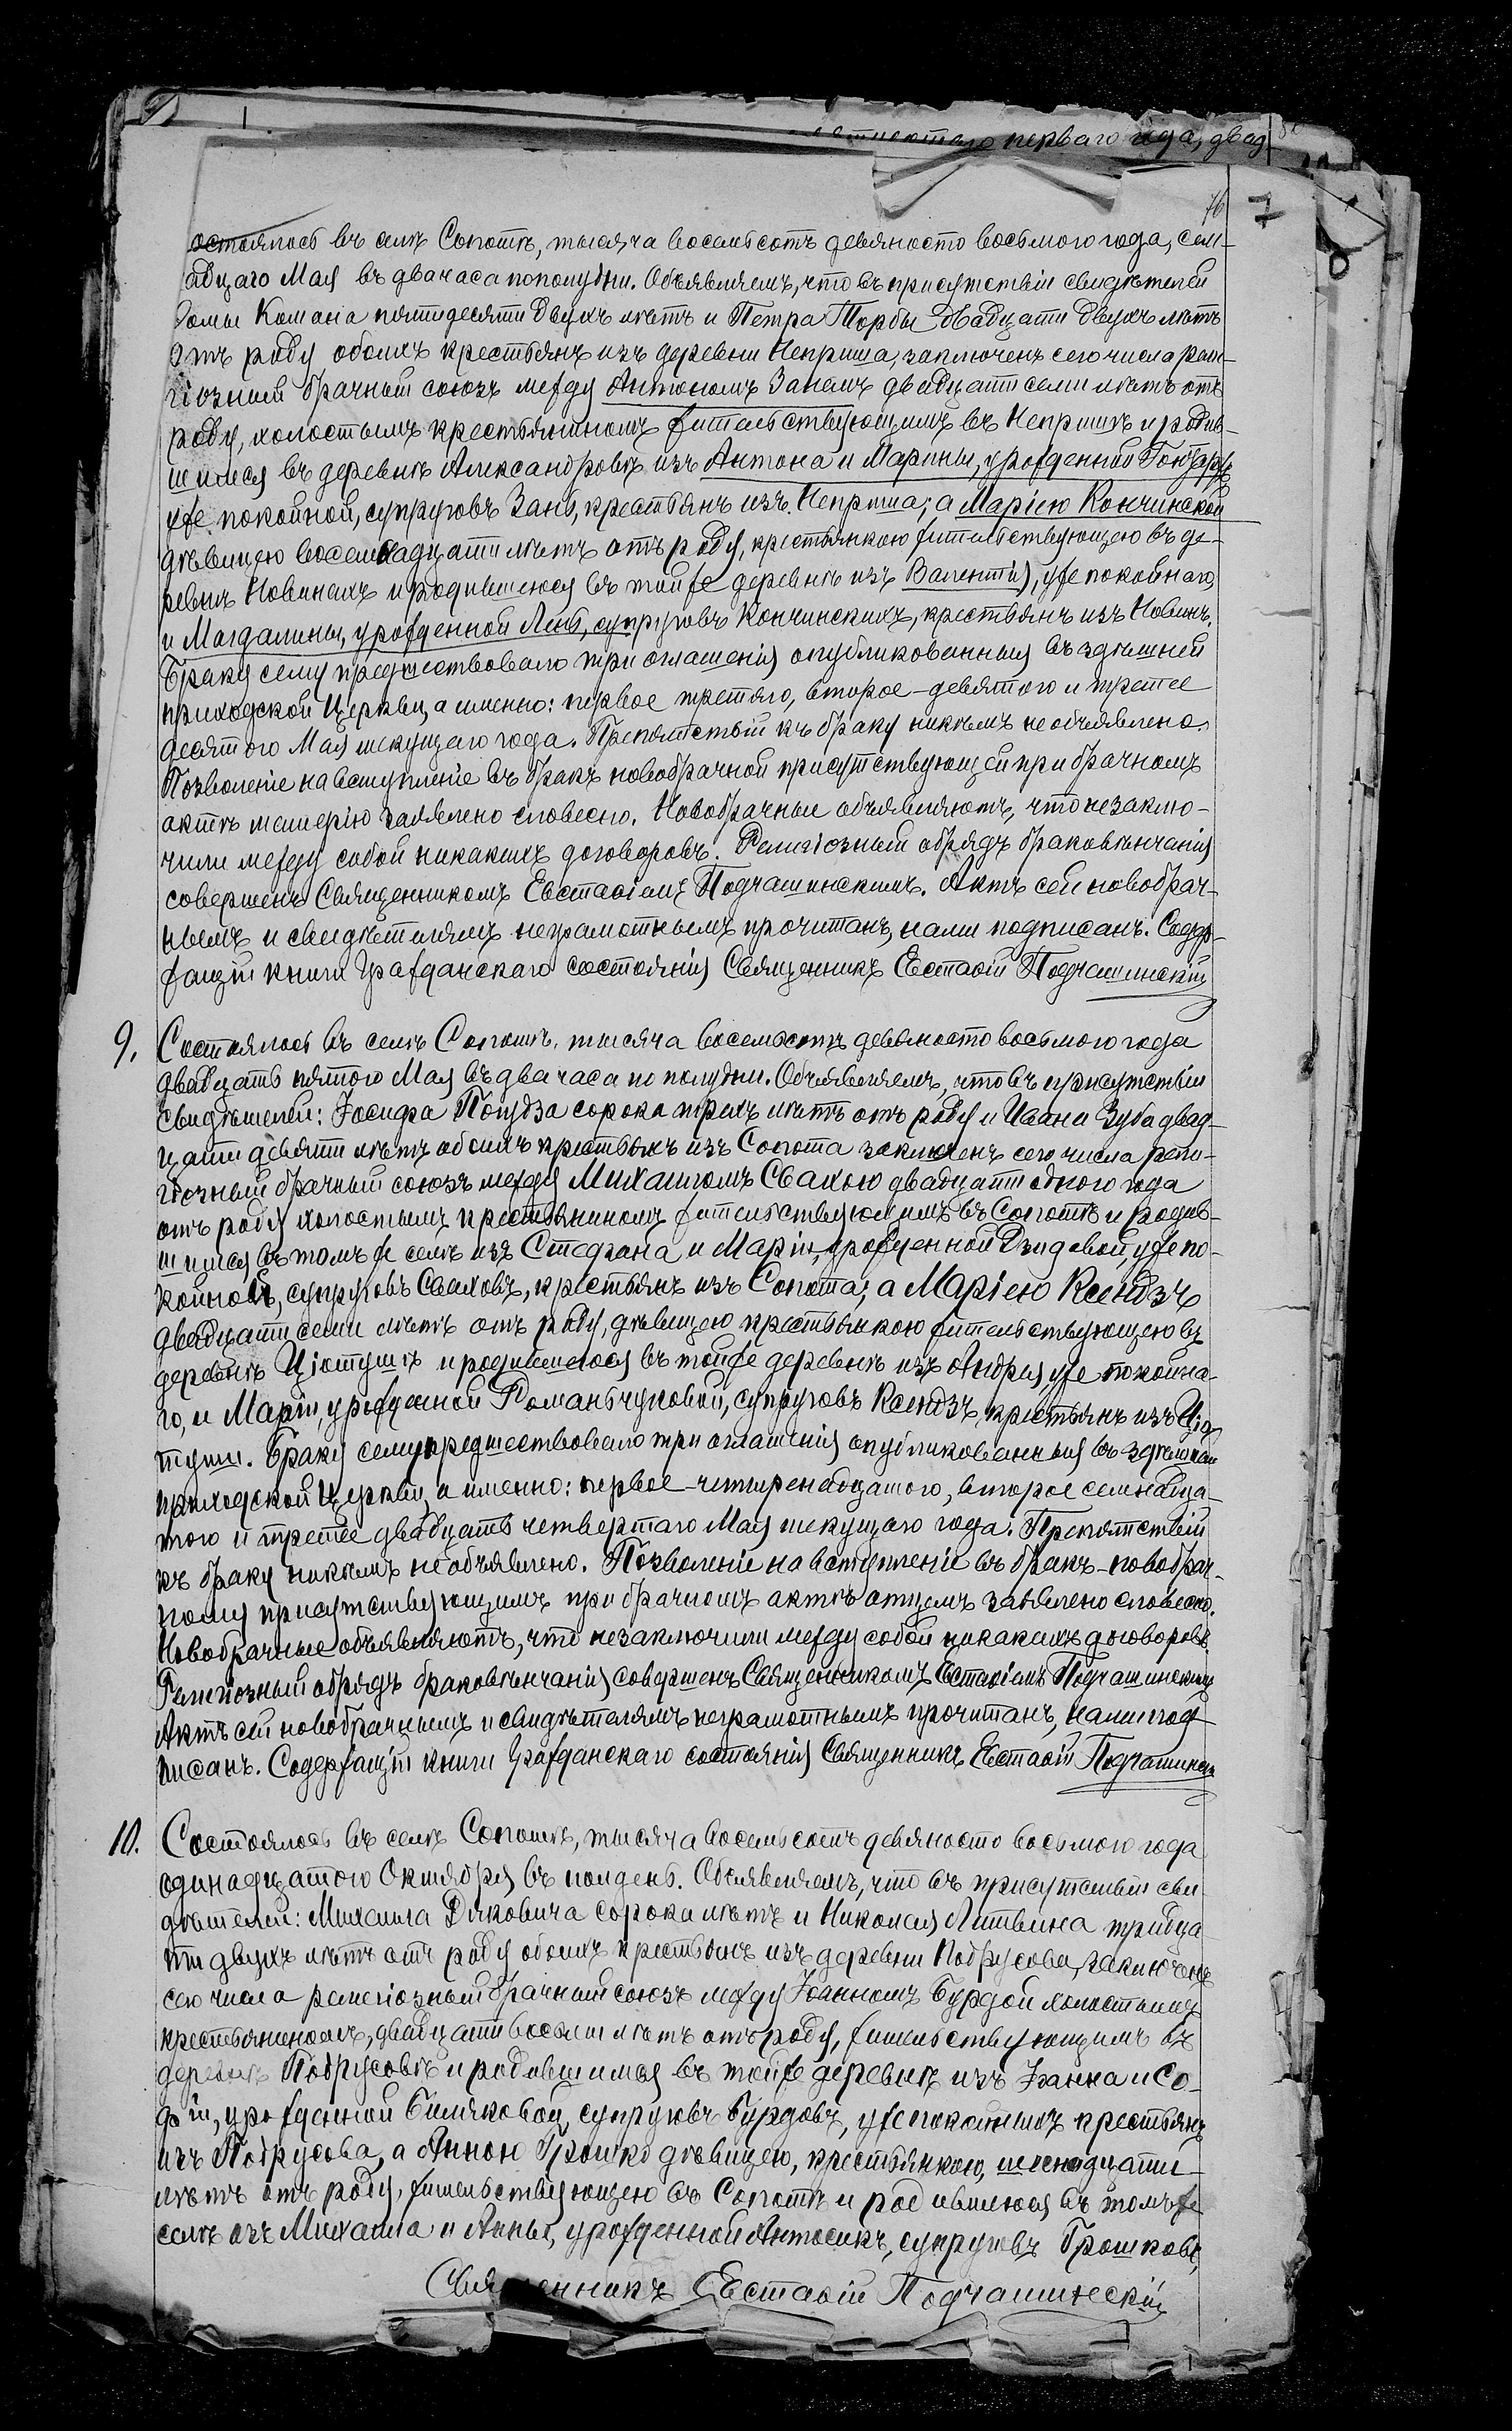 перваго года, двад
76
7
остоялось въ селѣ Сопотѣ, тысяча восемьсотъ девяносто восьмого года, сем-
адцаго Мая въ два часа пополудни. Объявляемъ, что въ присутствіи свидѣтелей
Ѳомы Комана пятидесяти двухъ лѣтъ и Петра Торбы двадцати двухъ лѣтъ
отъ роду обоихъ крестьянъ изъ деревни Неприша, заключенъ сего числа рели-
гіозный брачный союзъ между Антономъ Занемъ двадцати семи лѣтъ отъ
роду, холостымъ крестьяниномъ жительствующимъ въ Непришѣ и родив-
шимся въ деревнѣ Александровкѣ изъ Антона и Марины, урожденной Гончаръ,
уже покойной, супруговъ Зань, крестьянъ изъ Неприша; а Маріею Кончинской
дѣвицею восемнадцати лѣтъ отъ роду, крестьянкою жительствующею въ де-
ревнѣ Новинахъ и родившеюся въ тойже деревнѣ изъ Валентія, уже покойнаго,
и Магдалины, урожденной Лень, супруговъ Кончинскихъ, крестьянъ изъ Новинъ.
Браку сему предшествовало три оглашенія опубликованныя въ здѣшней
приходской Церкви, а именно: первое третяго, второе - девятого и третее
десятого Мая текущаго года. Препятствій къ браку никѣмъ не объявлено.
Позволеніе на вступленіе въ бракъ новобрачной присутствующей при брачномъ
актѣ матерію заявлено словесно. Новобрачные объявляютъ, что незаклю-
чили между собой никакихъ договоровъ. Религіозный обрядъ браковѣнчанія
совершенъ Священникомъ Евстаѳіемъ Подчашинскимъ. Актъ сей новобрач-
нымъ и свидѣтелямъ неграмотнымъ прочитанъ, нами подписанъ. Содер-
жащій книги гражданскаго состоянія Священникъ Евстаѳій Подчашинскій
9. Состоялось въ селѣ Сопотѣ, тысяча восемьсотъ девяносто восьмого года
двадцать пятого Мая въ два часа по полудни. Объявляемъ, что въ присутствіи
свидѣтелей: Іосифа Попудза сорока трехъ лѣтъ отъ роду и Ивана Зуба двад-
цати девяти лѣтъ обоихъ крестьянъ изъ Сопота заключенъ сего числа рели-
гіозный брачный союзъ между Михаиломъ Свахою двадцати одного года
отъ роду холостымъ крестьяниномъ жительствующимъ въ Сопотѣ и родив-
шимся въ томъ же селѣ изъ Стефана и Маріи, урожденной Дзидовой, уже по-
койной, супруговъ Сваховъ, крестьянъ изъ Сопота; а Маріею Ксендзъ
двадцати семи лѣтъ отъ роду, дѣвицею крестьянкою жительствующею въ
деревнѣ Цютушѣ и родившеюся въ тойже деревнѣ изъ Андрея, уже покойна-
го, и Маріи, урожденной Романьчуковой, супруговъ Ксендзъ, крестьянъ изъ Цю-
туши. Браку сему предшествовало три оглашенія опубликованныя въ здѣшней
приходской Церкви, а именно: первое - четыренадцатого, второе семнадца-
того и третее двадцать четвертаго Мая текущаго года. Препятствій
къ браку никѣмъ не объявлено. Позволеніе на вступленіе въ бракъ - новобрач-
ному присутствующимъ при брачномъ актѣ отцемъ заявлено словесно.
Новобрачные объявляютъ, что незаключили между собой никакихъ договоровъ.
Религіозный обрядъ браковѣнчанія совершенъ Священникомъ Евстаѳіемъ Подчашинскимъ
Актъ сей новобрачнымъ и свидѣтелямъ неграмотнымъ прочитанъ, нами под
писанъ. Содержащій книги гражданскаго состоянія Священникъ Евстаѳій Подчашинскій
10. Состоялось въ селѣ Сопотѣ, тысяча восемьсотъ девяносто восьмого года
одинадцатого Октября въ полдень. Объявляемъ, что въ присутствіи сви-
дѣтелей: Михаила Дяковича сорока лѣтъ и Николая Литвина тридца
ти двухъ лѣтъ отъ роду обоихъ крестьянъ изъ деревниПодрусова, заключенъ
сего числа религіозный брачный союзъ между Іоанномъ Бурдой холостымъ
крестьяниномъ, двадцати восьми лѣтъ отъ роду, жительствующимъ въ
деревнѣ Подрусовѣ и родившимся въ тойже деревнѣ изъ Іоанна и Со-
фіи, урожденной Билѣковой, супруговъ Бурдовъ, уже покойныхъ крестьянъ
изъ Подрусова, а Анною Грошко дѣвицею, крестьянкою, шеснадцати
лѣтъ отъ роду, жительствующею въ Сопотѣ и родившеюся въ томъже
селѣ изъ Михаила и Анны, урожденной Антосикъ, супруговъ Грошковъ,
Священникъ Евстаѳій Подчашинскій